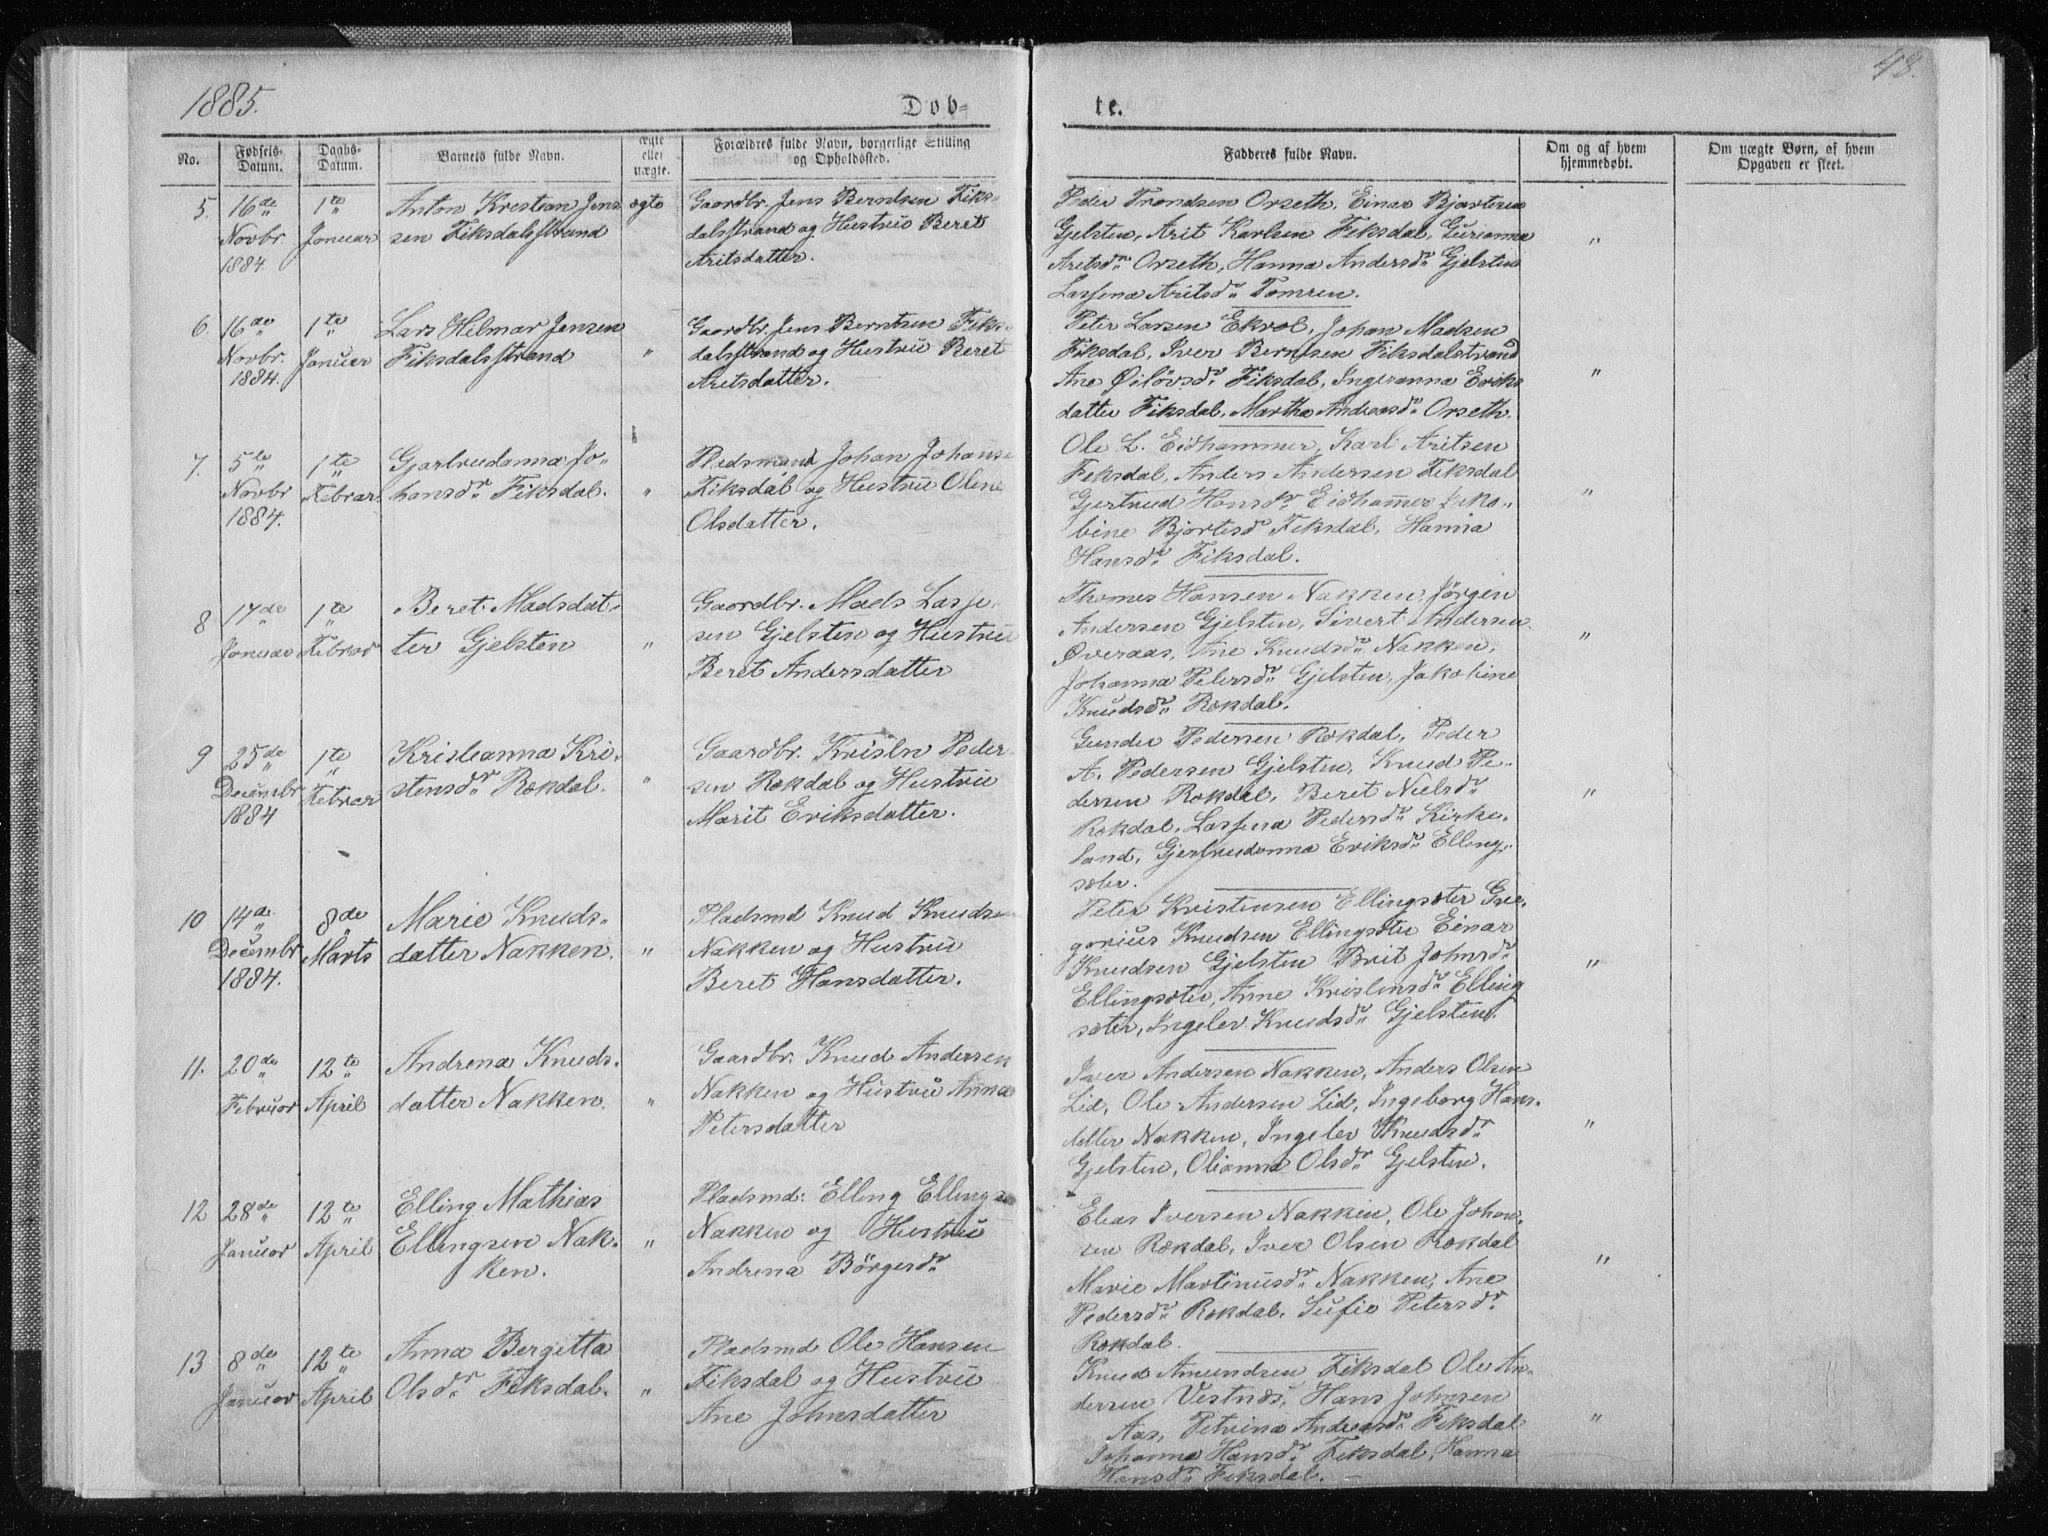 1885.
Døb-
te.
48.
No.
Fødsels-
Datum.
Daabs-
Datum.
Barnets fulde Navn.
ægte
eller
uægte.
Forældres fulde Navn, borgerlige Stilling
og Opholdssted.
Fadderes fulde Navn.
Om og af hvem
hjemmedøbt.
Om uægte Børn, af hvem
Opgaven er skeet.
5.
16de
Novbr.
1884.
1te
Januar
Anton Krestian Jens
sen Fiksdalsstrand
ægte
Gaardbr. Jens Berntsen Fiks-
dalsstrand og Hustru Beret
Aritsdatter.
Peder Trondsen Orseth, Einar Bjartesen
Gjelsten, Arit Karlsen Fiksdal, Gurianna
Aritsdr. Orseth, Hanna Andersdr. Gjelsten
Lassena Aritsdr. Tomren.
"
6.
16de
Novbr.
1884.
1te
Januar
Lars Hilmar Jensen
Fiksdalsstrand
"
Gaardbr. Jens Berntsen Fiks-
dalsstrand og Hustru Beret
Aritsdatter.
Peter Larsen Ekrol, Johan Madsen
Fiksdal, Iver Berntsen Fiksdalstrand
Ane Øiløvsdr. Fiksdal, Ingeranna Eriks
datter Fiksdal, Martha Andreasdr. Orseth.
"
7.
5te
Novbr
1884.
1te
Februar
Gjertrudanna Jo-
hansdr. Fiksdal.
"
Pladsmand Johan Johans
Fiksdal og Hustru Oline
Olsdatter.
Ole L. Eidhammer, Karl Aritsen
Fiksdal, Anders Andersen Fiksdal
Gjertrud Hansdr. Eidhammer Jako-
bine Bjartesdr. Fiksdal, Hanna
Hansdr. Fiksdal.
"
8
17de
Januar
1te
Februar
Beret Madsdat-
ter Gjelsten
"
Gaardbr. Mads Lasse-
sen Gjelsten og Hustru
Beret Andersdatter
Thomes Hansen Nakken, Jørgen
Andersen Gjelsten, Sivert Andersen
Øveraas, Ane Knudsdr. Nakken,
Johanna Petersdr. Gjelsten, Jakobine
Knudsdr. Rekdal.
"
9
25de
Decembr
1884
1te
Februar
Kristianna Kri-
stensdr. Rekdal.
"
Gaardbr. Kristn Peder-
sen Rekdal og Hustru
Marit Eriksdatter.
Gunder Pedersen Rekdal, Peder
A. Pedersen Gjelsten, Knud Pe-
dersen Rekdal, Beret Nielsdr.
Rekdal, Lassena Pedersdr. Kirke-
land, Gjertrudanna Eriksdr. Elling-
sæter.
"
10
14de
Decembr
1884.
8de
Marts
Marie Knuds-
datter Nakken.
"
Pladsmd Knud Knudsen
Nakken og Hustru
Beret Hansdatter.
Peter Kristensen Ellingsæter Gre-
gorius Knudsen Ellingsæter Einar
Knudsen Gjelsten Brit Johnsdr.
Ellingsæter, Anne Kristensdr. Elling
sæter, Ingelev Knudsdr. Gjelsten.
"
11.
20de
Februar
12te
April
Andrena Knuds-
datter Nakken.
"
Gaardbr. Knud Andersen
Nakken og Hustru Anna
Petersdatter
Iver Andersen Nakken, Anders Olsen
Lid, Ole Andersen Lid, Ingeborg Hans-
datter Nakken, Ingelev Knudsdr.
Gjelsten, Olianna Olsdr. Gjelsten.
"
12
28de
Januar
12te
April
Elling Mathias
Ellingsen Nak-
ken.
"
Pladsmd: Elling Ellings
Nakken og Hustru
Andrena Børgesdr.
Elias Iversen Nakken, Ole Johan-
sen Rekdal, Iver Olsen Rekdal
Marie Martinusdr. Nakken, Ane
Pedersdr. Rekdal, Sufie Petersdr.
Rekdal.
"
13
8de
Januar
12te
April
Anna Bergitta
Olsdr. Fiksdal.
"
Pladsmd Ole Hansen
Fiksdal og Hustru
Ane Johnsdatter
Knud Amundsen Fiksdal Ole An-
dersen Vestnæs, Hans Johnsen
Aas, Petrina Andreasdr. Fiksdal
Johanna Hansdr. Fiksdal, Hanna
Hansdr. Fiksdal.
"